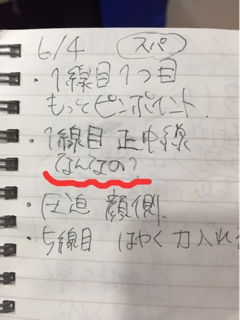 6/4 スパ
・1線目 1つ目
もっとピンポイント.
・1線目 正中線
なんなの?
・圧迫 顔側.
・5線目 はやく力入れ